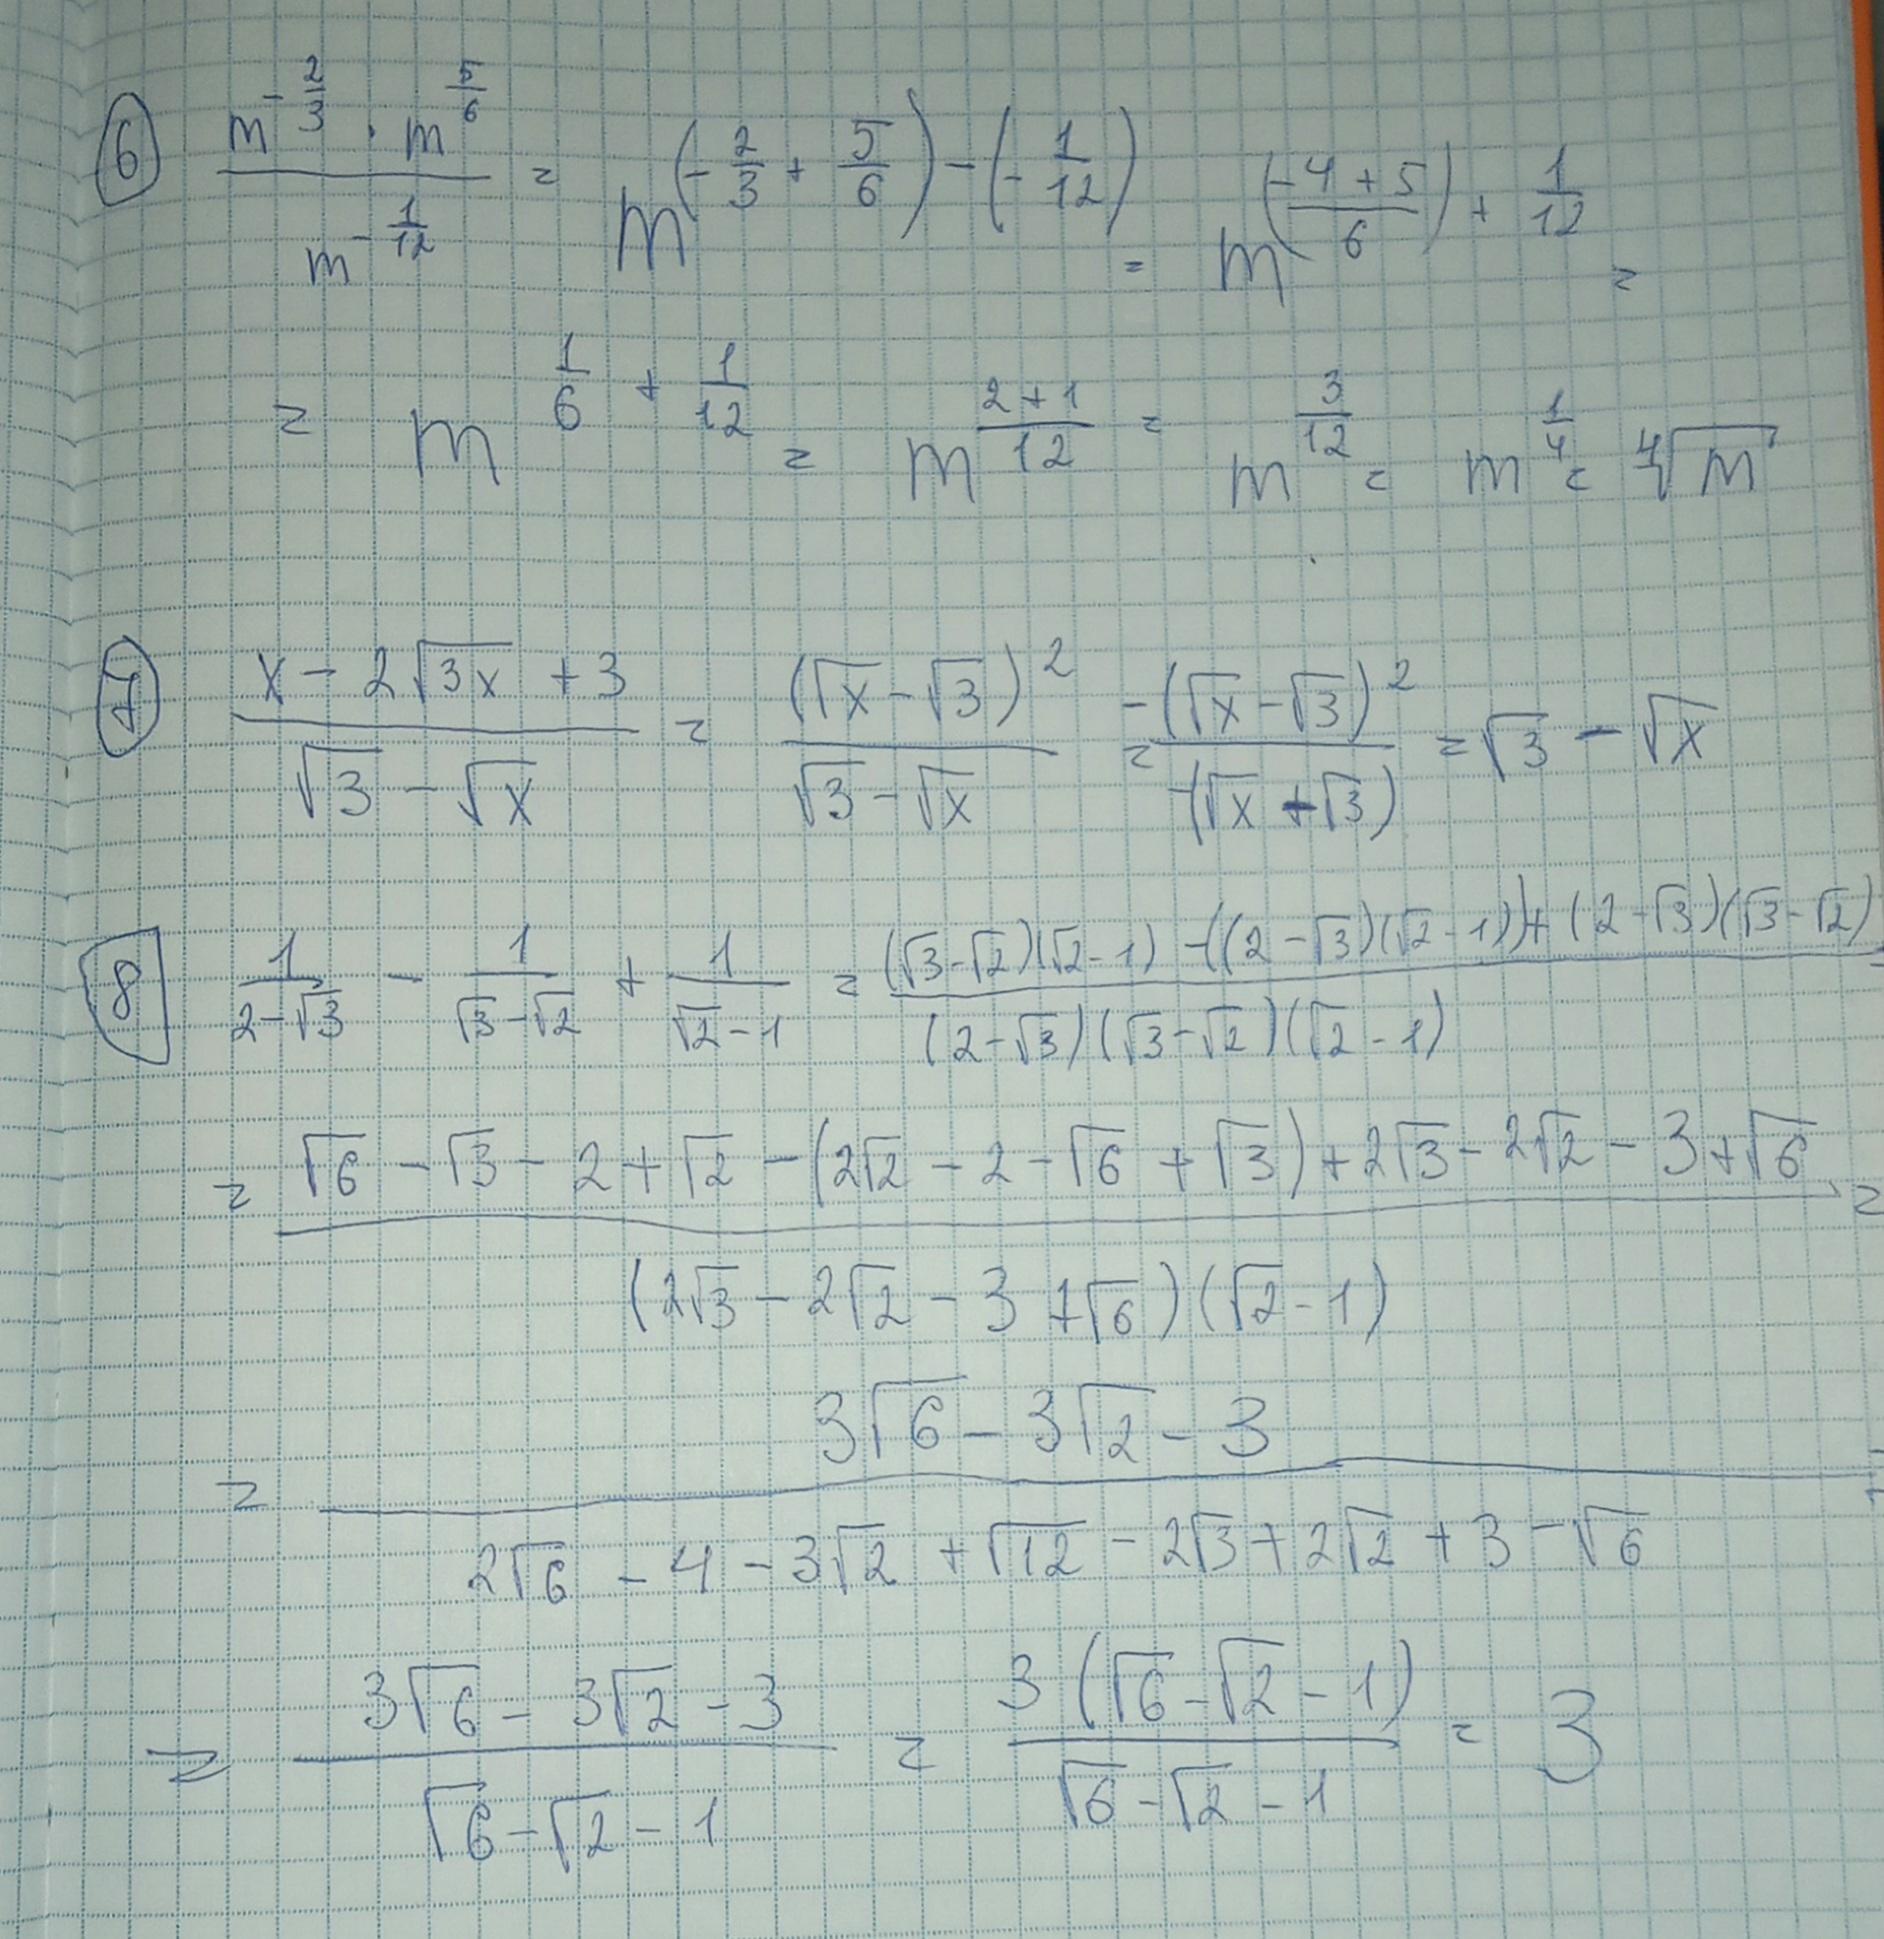 6 (m^(-2/3) · m^(5/6))/(m^(-1/12)) = m^((-2/3 + 5/6) - (-1/12)) = m^(((-4+5)/6) + 1/12) =
= m^(1/6 + 1/12) = m^((2+1)/12) = m^(3/12) = m^(1/4) = ⁴√m
7 (x - 2√(3x) + 3)/(√3 - √x) = (√x - √3)²/(√3 - √x) = -(√x - √3)²/-(√x + √3) = √3 - √x
8 1/(2-√3) - 1/(√3-√2) + 1/(√2-1) = ((√3-√2)(√2-1) - ((2-√3)(√2-1)) + (2-√3)(√3-√2))/((2-√3)(√3-√2)(√2-1)) =
= (√6 - √3 - 2 + √2 - (2√2 - 2 - √6 + √3) + 2√3 - 2√2 - 3 + √6)/((2√3 - 2√2 - 3 + √6)(√2-1)) =
= (3√6 - 3√2 - 3)/(2√6 - 4 - 3√2 + √12 - 2√3 + 2√2 + 3 - √6) =
= (3√6 - 3√2 - 3)/(√6 - √2 - 1) = 3(√6 - √2 - 1)/(√6 - √2 - 1) = 3